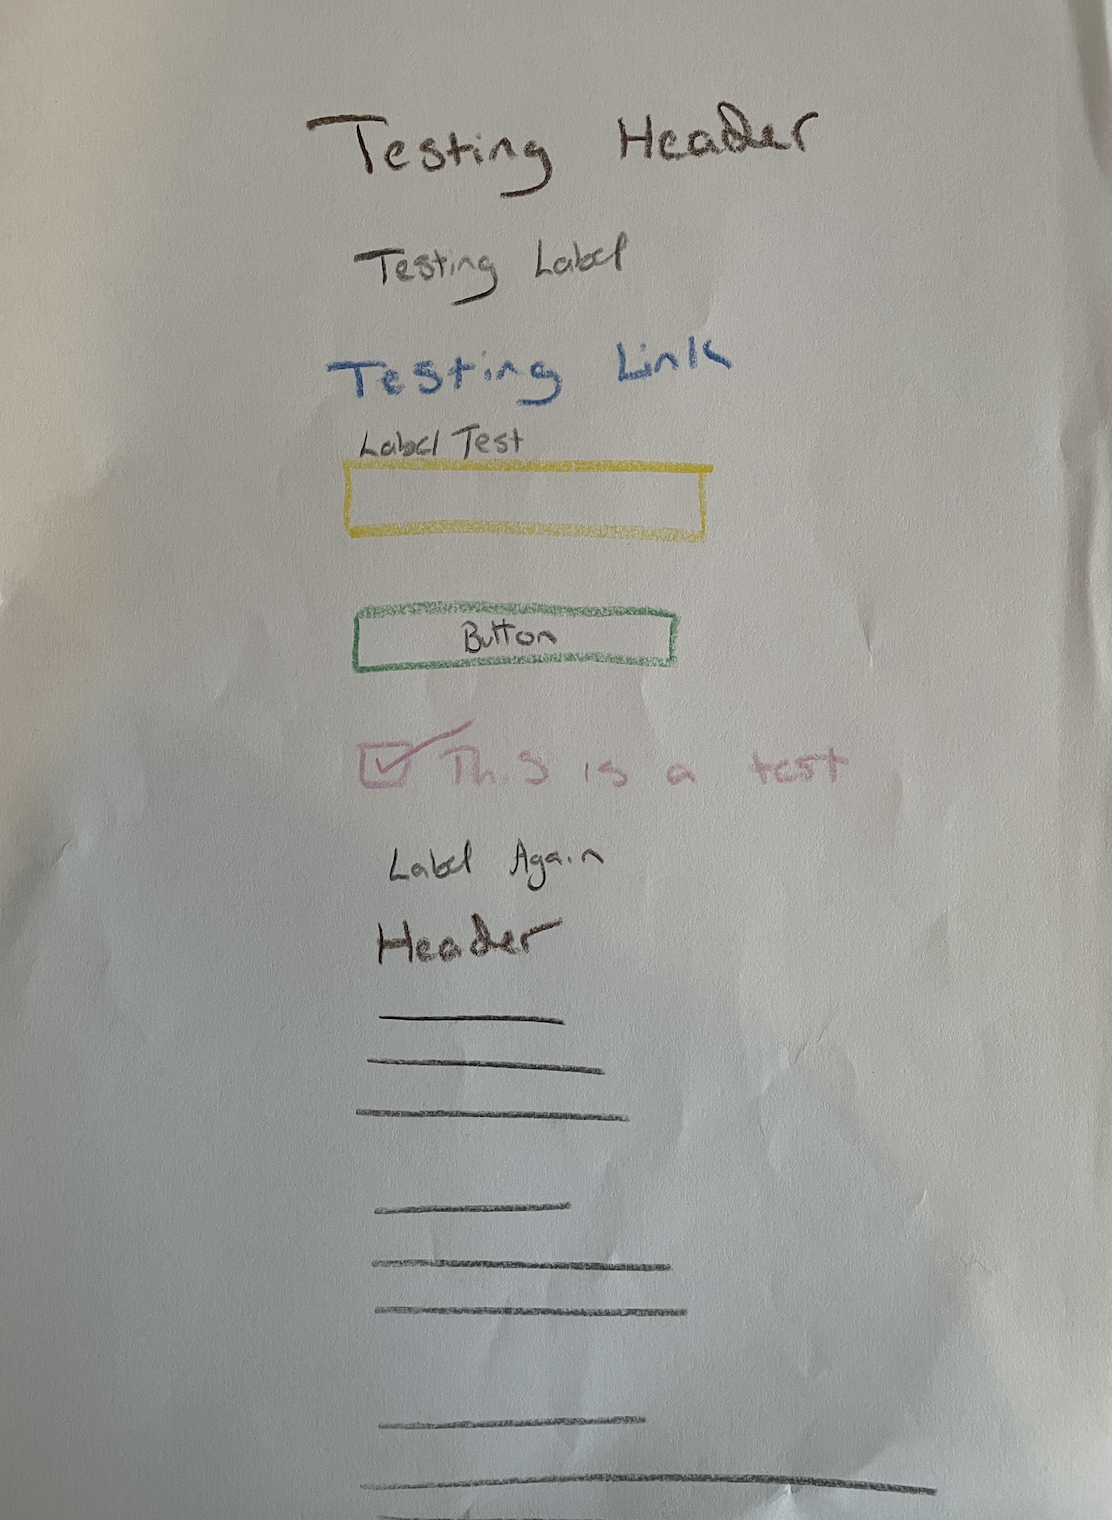 Testing Header
Testing Label
Testing Link
Label Test
Button
This is a test
Label Again
Header